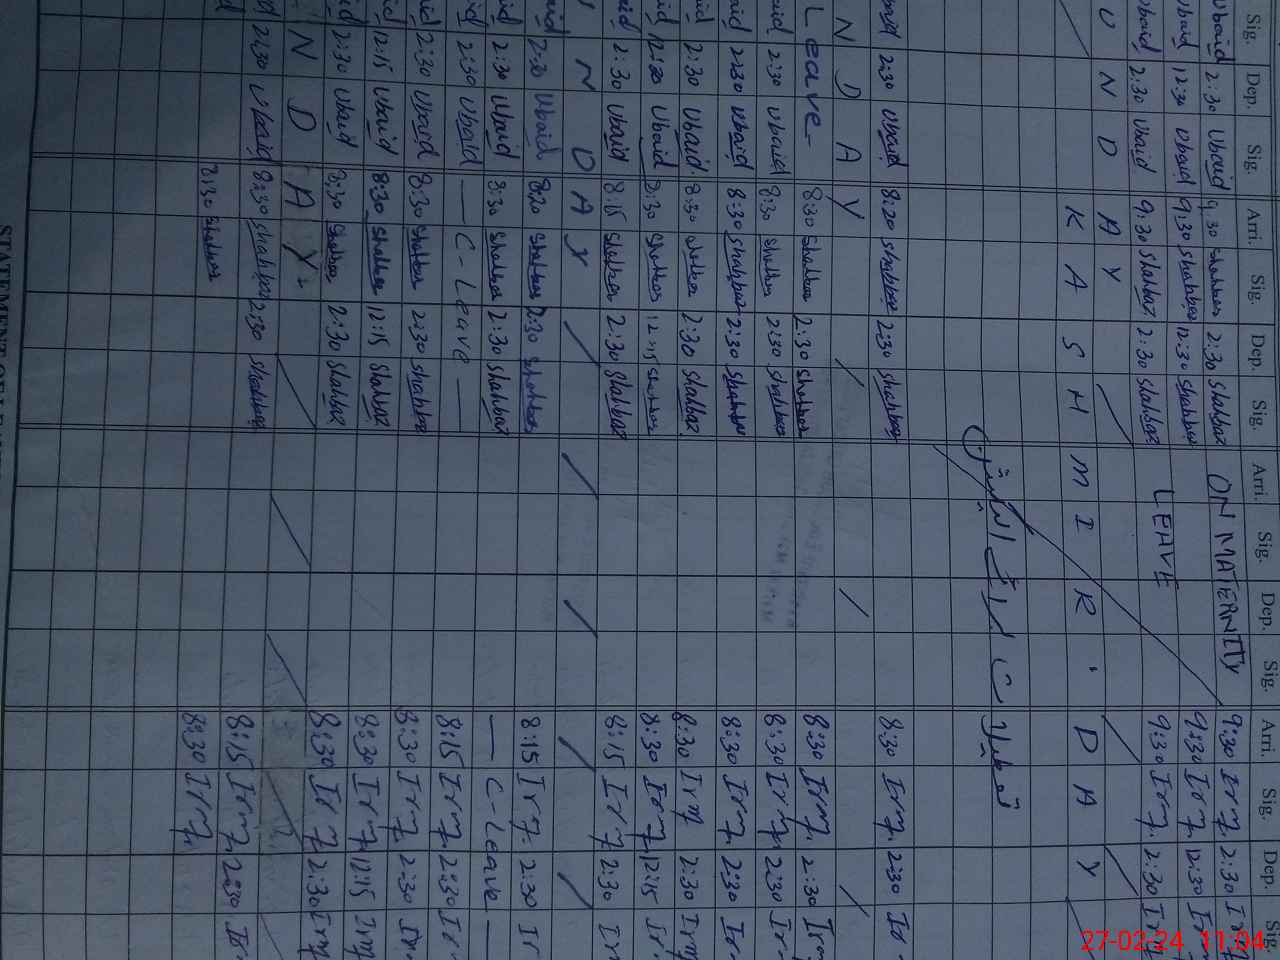 Sig. Dep. Sig. Arri. Sig. Dep. Sig. Arri. Sig. Dep. Sig. Arri. Sig. Dep. Sig.
Ubaid 2:30 Ubaid 9:30 Shahbaz 2:30 Shahbaz ON MATERNITY 9:30 Irm 2:30
Ubaid 12:30 Ubaid 9:30 Shahbaz 12:30 Shahbaz LEAVE 9:30 Irm 12:30
Ubaid 2:30 Ubaid 9:30 Shahbaz 2:30 Shahbaz 9:30 Irm 2:30
U N D A Y
K A S H M I R . D A Y
2:30 Ubaid 8:20 Shahbaz 2:30 Shahbaz 8:30 Irm 2:30
N D A Y
Leave 8:30 Shahbaz 2:30 Shahbaz 8:30 Irm 2:30
Ubaid 2:30 Ubaid 8:30 Shahbaz 2:30 Shahbaz 8:30 Irm 2:30
Ubaid 2:30 Ubaid 8:30 Shahbaz 2:30 Shahbaz 8:30 Irm 2:30
2:30 Ubaid 8:30 Shahbaz 2:30 Shahbaz 8:30 Irm 2:30 Irm
12:30 Ubaid 8:30 Shahbaz 12:15 Shahbaz 8:30 Irm 12:15
2:30 Ubaid 8:15 Shahbaz 2:30 Shahbaz 8:15 Irm 2:30
U N D A Y
2:30 Ubaid 8:20 Shahbaz 2:30 Shahbaz 8:15 Irm 2:30
2:30 Ubaid 8:30 Shahbaz 2:30 Shahbaz C-Leave
2:30 Ubaid C-Leave 8:15 Irm 2:30
2:30 Ubaid 8:30 Shahbaz 2:30 Shahbaz 8:30 Irm 2:30
12:15 Ubaid 8:30 Shahbaz 12:15 Shahbaz 8:30 Irm 12:15 Irm
2:30 Ubaid 8:30 Shahbaz 2:30 Shahbaz 8:30 Irm 2:30 Irm
N D A Y
2:30 Ubaid 8:30 Shahbaz 2:30 Shahbaz 8:15 Irm 2:30
8:30 Shahbaz 8:30 Irm
STATEMENT OF
27-02-24 11:04